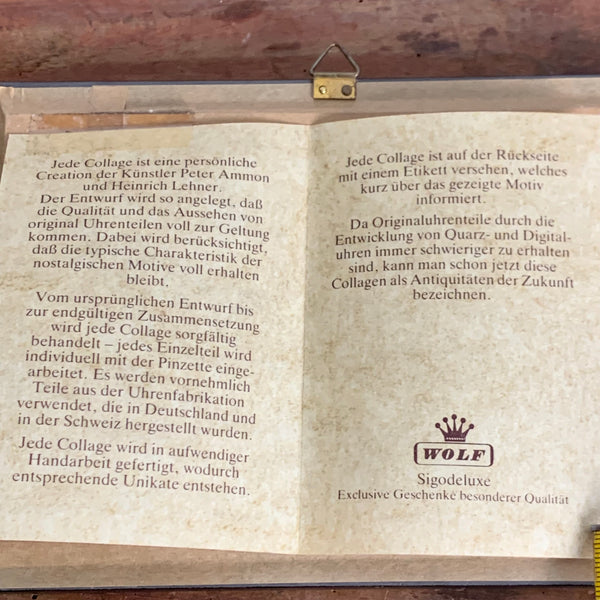 Jede Collage ist eine persönliche
Creation der Künstler Peter Ammon
und Heinrich Lehner.
Der Entwurf wird so angelegt, daß
die Qualität und das Aussehen von
original Uhrenteilen voll zur Geltung
kommen. Dabei wird berücksichtigt,
daß die typische Charakteristik der
nostalgischen Motive voll erhalten
bleibt.
Vom ursprünglichen Entwurf bis
zur endgültigen Zusammensetzung
wird jede Collage sorgfältig
behandelt – jedes Einzelteil wird
individuell mit der Pinzette einge-
arbeitet. Es werden vornehmlich
Teile aus der Uhrenfabrikation
verwendet, die in Deutschland und
in der Schweiz hergestellt wurden.
Jede Collage wird in aufwendiger
Handarbeit gefertigt, wodurch
entsprechende Unikate entstehen.
Jede Collage ist auf der Rückseite
mit einem Etikett versehen, welches
kurz über das gezeigte Motiv
informiert.
Da Originaluhrenteile durch die
Entwicklung von Quarz- und Digital-
uhren immer schwieriger zu erhalten
sind, kann man schon jetzt diese
Collagen als Antiquitäten der Zukunft
bezeichnen.
WOLF
Sigodeluxe
Exclusive Geschenke besonderer Qualität